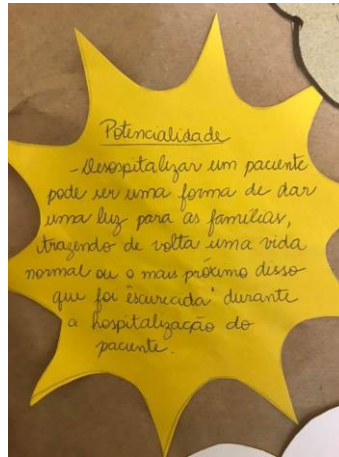 Potencialidade
- Desospitalizar um paciente
pode ser uma forma de dar
uma luz para as famílias,
trazendo de volta uma vida
normal ou o mais próximo disso
que foi "escurecida" durante
a hospitalização do
paciente.